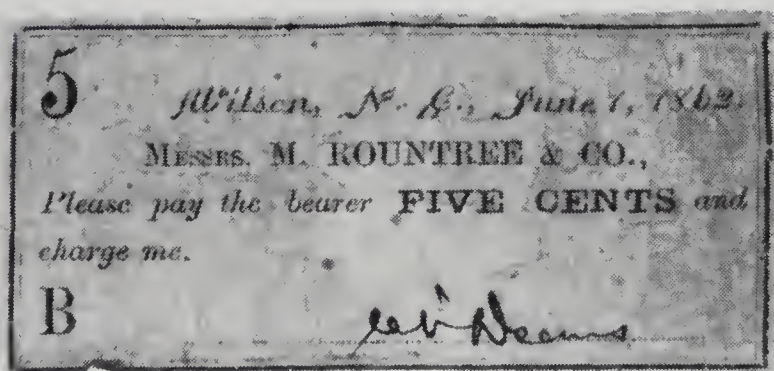 5
Wilson, N. C., June 1, 1862.
MESSRS. M. ROUNTREE & CO.,
Please pay the bearer FIVE CENTS and
charge me.
B
Deans